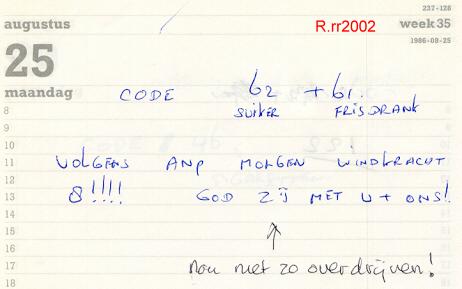 237-128
augustus R.rr2002 week 35
1986-08-25
25
maandag
CODE 62 + 61.
8 SUIKER FRISDRANK
9
10
11 VOLGENS ANP MORGEN WINDKRACHT
12
13 8!!!! GOD ZIJ MET U + ONS!
14
15
16
17 nou niet zo overdrijven!
18